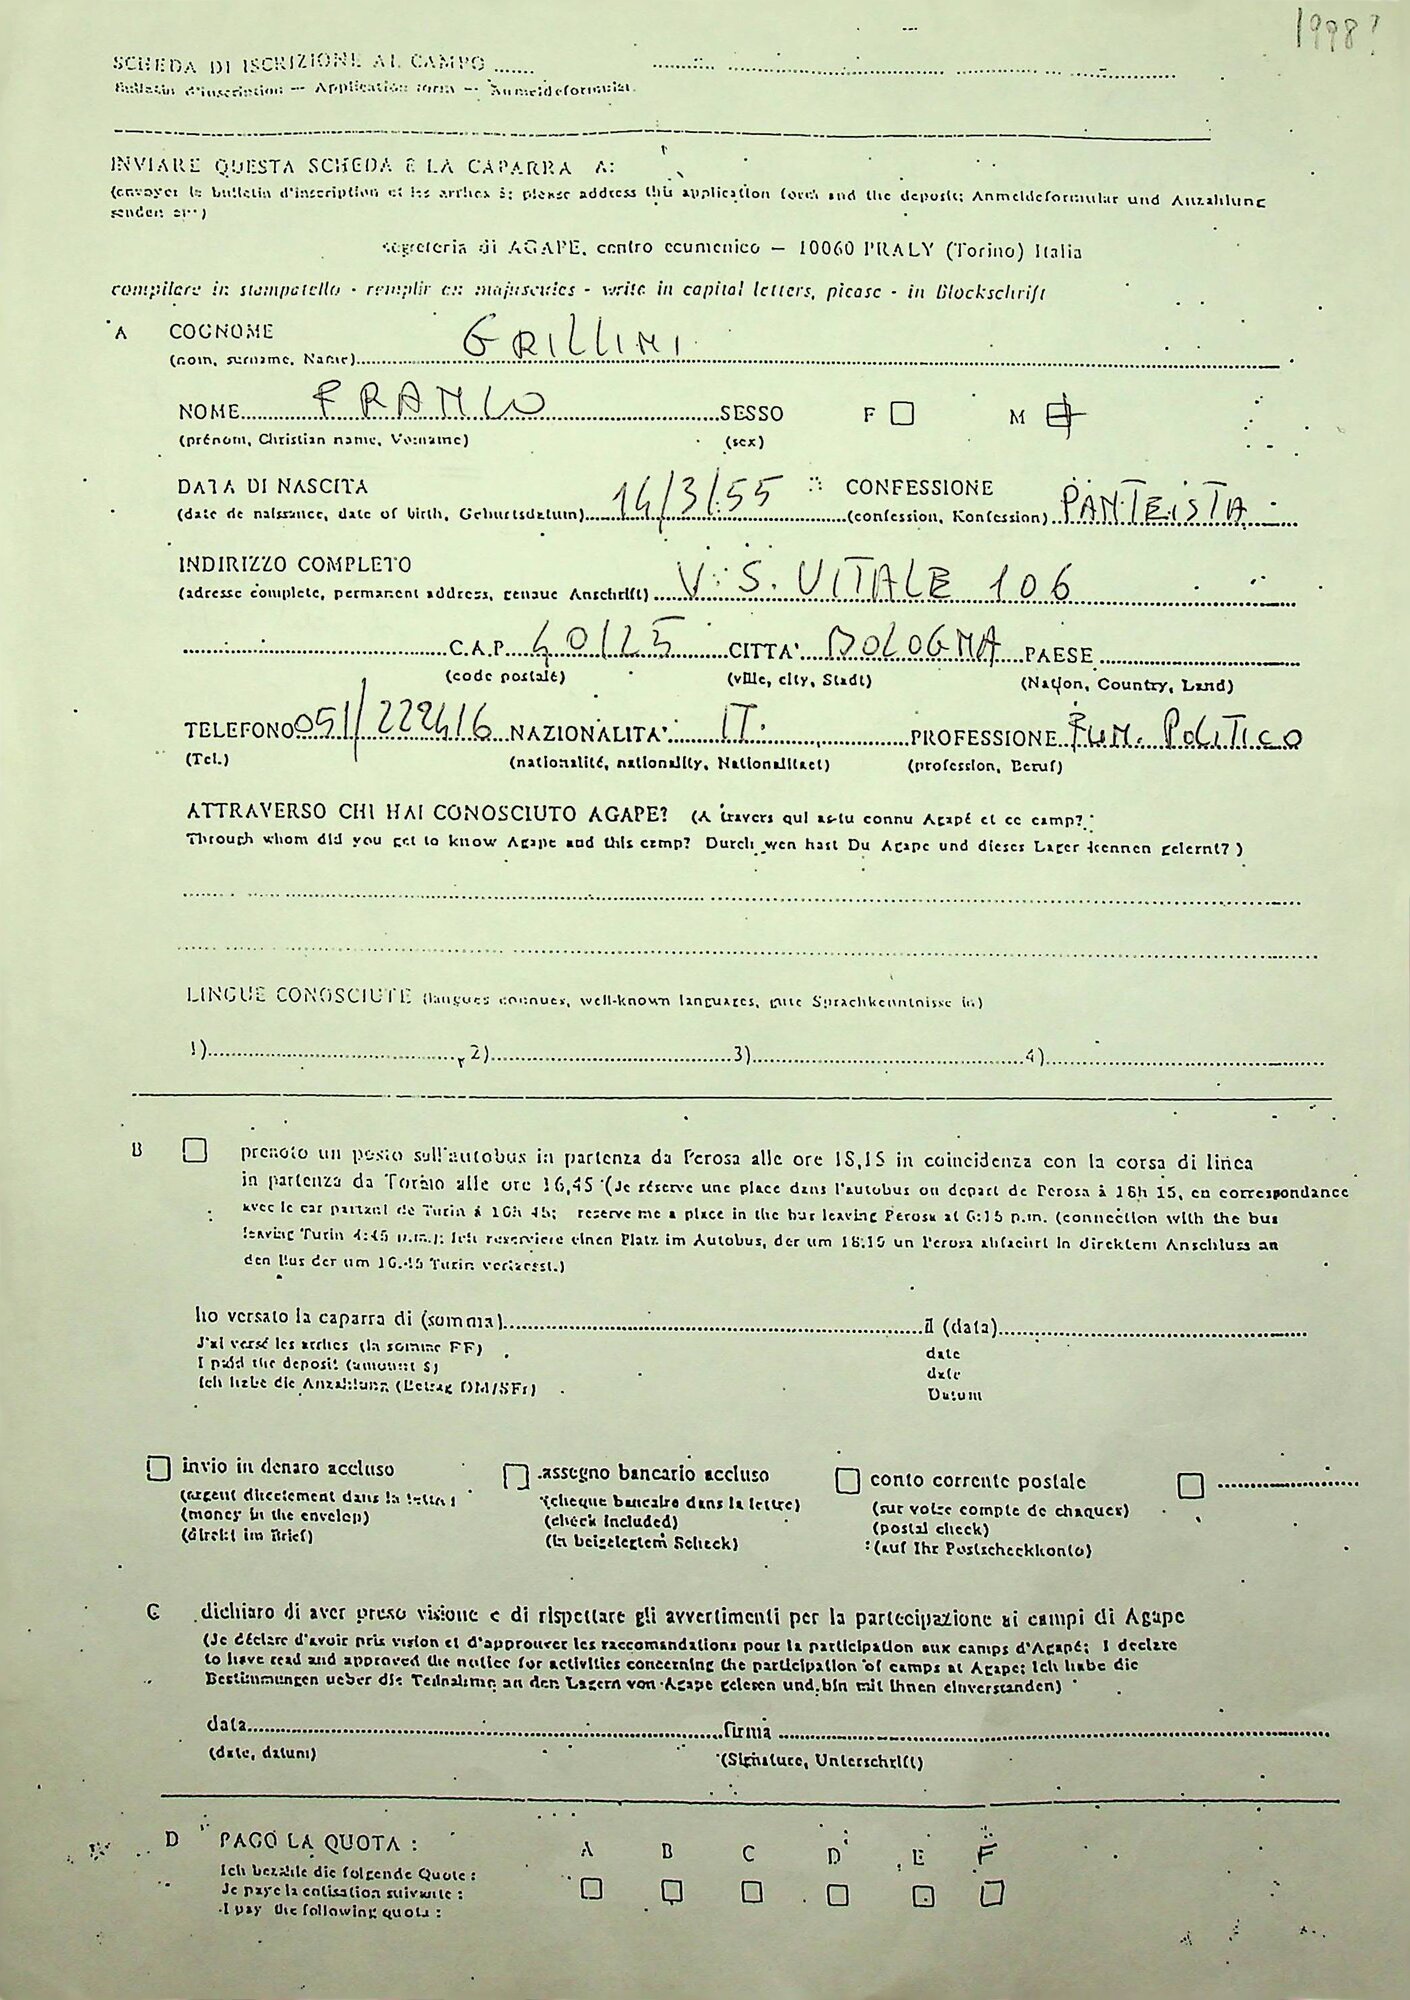 1998?
SCHEDA DI ISCRIZIONE AL CAMPO ......
Bulletin d'inscription — Application form — Anmeldeformular
INVIARE QUESTA SCHEDA E LA CAPARRA A:
(envoyer le bulletin d'inscription et les arrhes à; please address this application form and the deposit; Anmeldeformular und Anzahlung
senden an:)
segreteria di AGAPE, centro ecumenico — 10060 PRALY (Torino) Italia
compilare in stampatello - remplir en majuscules - write in capital letters, please - in Blockschrift
A COGNOME GRILLINI
(nom, surname, Name)
NOME FRANCO SESSO F M
(prénom, Christian name, Vorname) (sex)
DATA DI NASCITA 14/3/55 CONFESSIONE PANTEISTA
(date de naissance, date of birth, Geburtsdatum) (confession, Konfession)
INDIRIZZO COMPLETO V. S. VITALE 106
(adresse complete, permanent address, genaue Anschrift)
C.A.P. 40125 CITTA' BOLOGNA PAESE
(code postale) (ville, city, Stadt) (Nation, Country, Land)
TELEFONO 051/222416 NAZIONALITA' IT. PROFESSIONE FUN. POLITICO
(Tel.) (nationalité, nationality, Nationalitaet) (profession, Beruf)
ATTRAVERSO CHI HAI CONOSCIUTO AGAPE? (A travers qui as-tu connu Agapé et ce camp?
Through whom did you get to know Agape and this camp? Durch wen hast Du Agape und dieses Lager kennen gelernt?)
LINGUE CONOSCIUTE (langues connues, well-known languages, gute Sprachkenntnisse in)
1) 2) 3) 4)
B prenoto un posto sull'autobus in partenza da Perosa alle ore 18,15 in coincidenza con la corsa di linea
in partenza da Torino alle ore 16,45 (Je réserve une place dans l'autobus ou depart de Perosa à 18h 15, en correspondance
avec le car partant de Turin à 16h 45; reserve me a place in the bus leaving Perosa at 6:15 p.m. (connection with the bus
leaving Turin 4:45 p.m.); Ich reserviere einen Platz im Autobus, der um 18:15 un Perosa abfaehrt in direktem Anschluss an
den Bus der um 16.45 Turin verlaesst.)
ho versato la caparra di (somma) il (data)
J'ai versé les arrhes (la somme FF) date
I paid the deposit (amount $) date
Ich habe die Anzahlung (Betrag DM/SFr) Datum
invio in denaro accluso assegno bancario accluso conto corrente postale
(argent directement dans la lettre) (cheque bancaire dans la lettre) (sur votre compte de chaques)
(money in the envelop) (check included) (postal check)
(direkt im Brief) (In beigelegtem Scheck) (auf Ihr Postscheckkonto)
C dichiaro di aver preso visione e di rispettare gli avvertimenti per la partecipazione ai campi di Agape
(Je déclare d'avoir pris vision et d'approuver les raccomandations pour la participation aux camps d'Agapé; I declare
to have read and approved the notice for activities concerning the participation of camps at Agape; Ich habe die
Bestimmungen ueber die Teilnahme an den Lagern von Agape gelesen und bin mit Ihnen einverstanden)
data firma
(date, datum) (Signature, Unterschrift)
D PAGO LA QUOTA : A B C D E F
Ich bezahle die folgende Quote :
Je paye la cotisation suivante :
I pay the following quota :